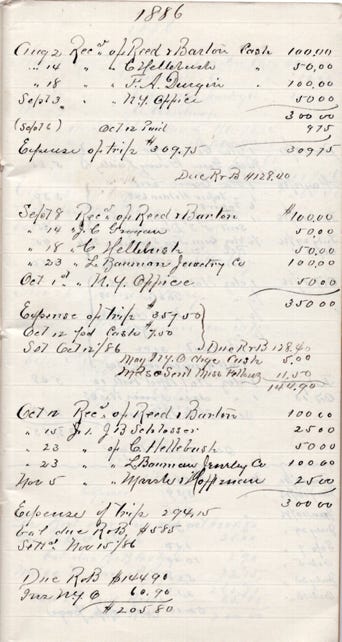 1886
Aug 2 Recd of Reed & Barton Cash 100.00
" 14 " " C Hellebush " 50.00
" 18 " " F. A. Durgin " 100.00
Sept 3 " " N.Y. Office 50 00
300 00
(Sept 6) Oct 12 Paid 9 75
Expense of trip $309.75 309 75
Due R & B $128.40
Sept 8 Recd of Reed & Barton $100.00
" 14 " J. C. 50.00
" 18 " C Hellebush 50.00
" 23 " L Bauman Jewelry Co 100.00
Oct 1st " N.Y. Office 50 00
350 00
Expense of trip $357.50
Oct 12 Cash $7.50
Set Oct 12/86 Due R & B 128.40
May N.Y. O Chge Cash 5.00
Mdse Sent Miss 11.50
144.90
Oct 12 Recd of Reed & Barton 100 00
" 15 " J B Schlosser 25 00
" 23 " of C. Hellebush 50 00
" 23 " " L Bauman Jewelry Co 100 00
Nov 5 " Marsh & Hoffman 25 00
300 00
Expense of trip 294.15
Bal due R & B $5.85
Settd Nov 15/86
Due R & B $144.90
N.Y. O 60.90
$205.80